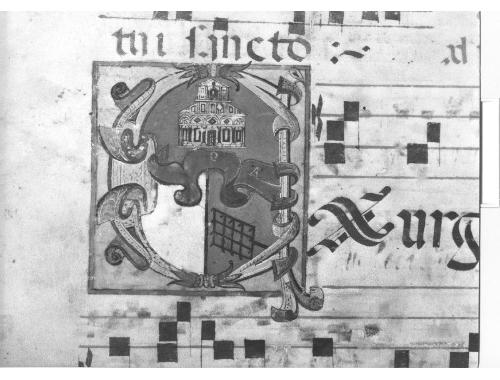 tui sancto :~
EXurg